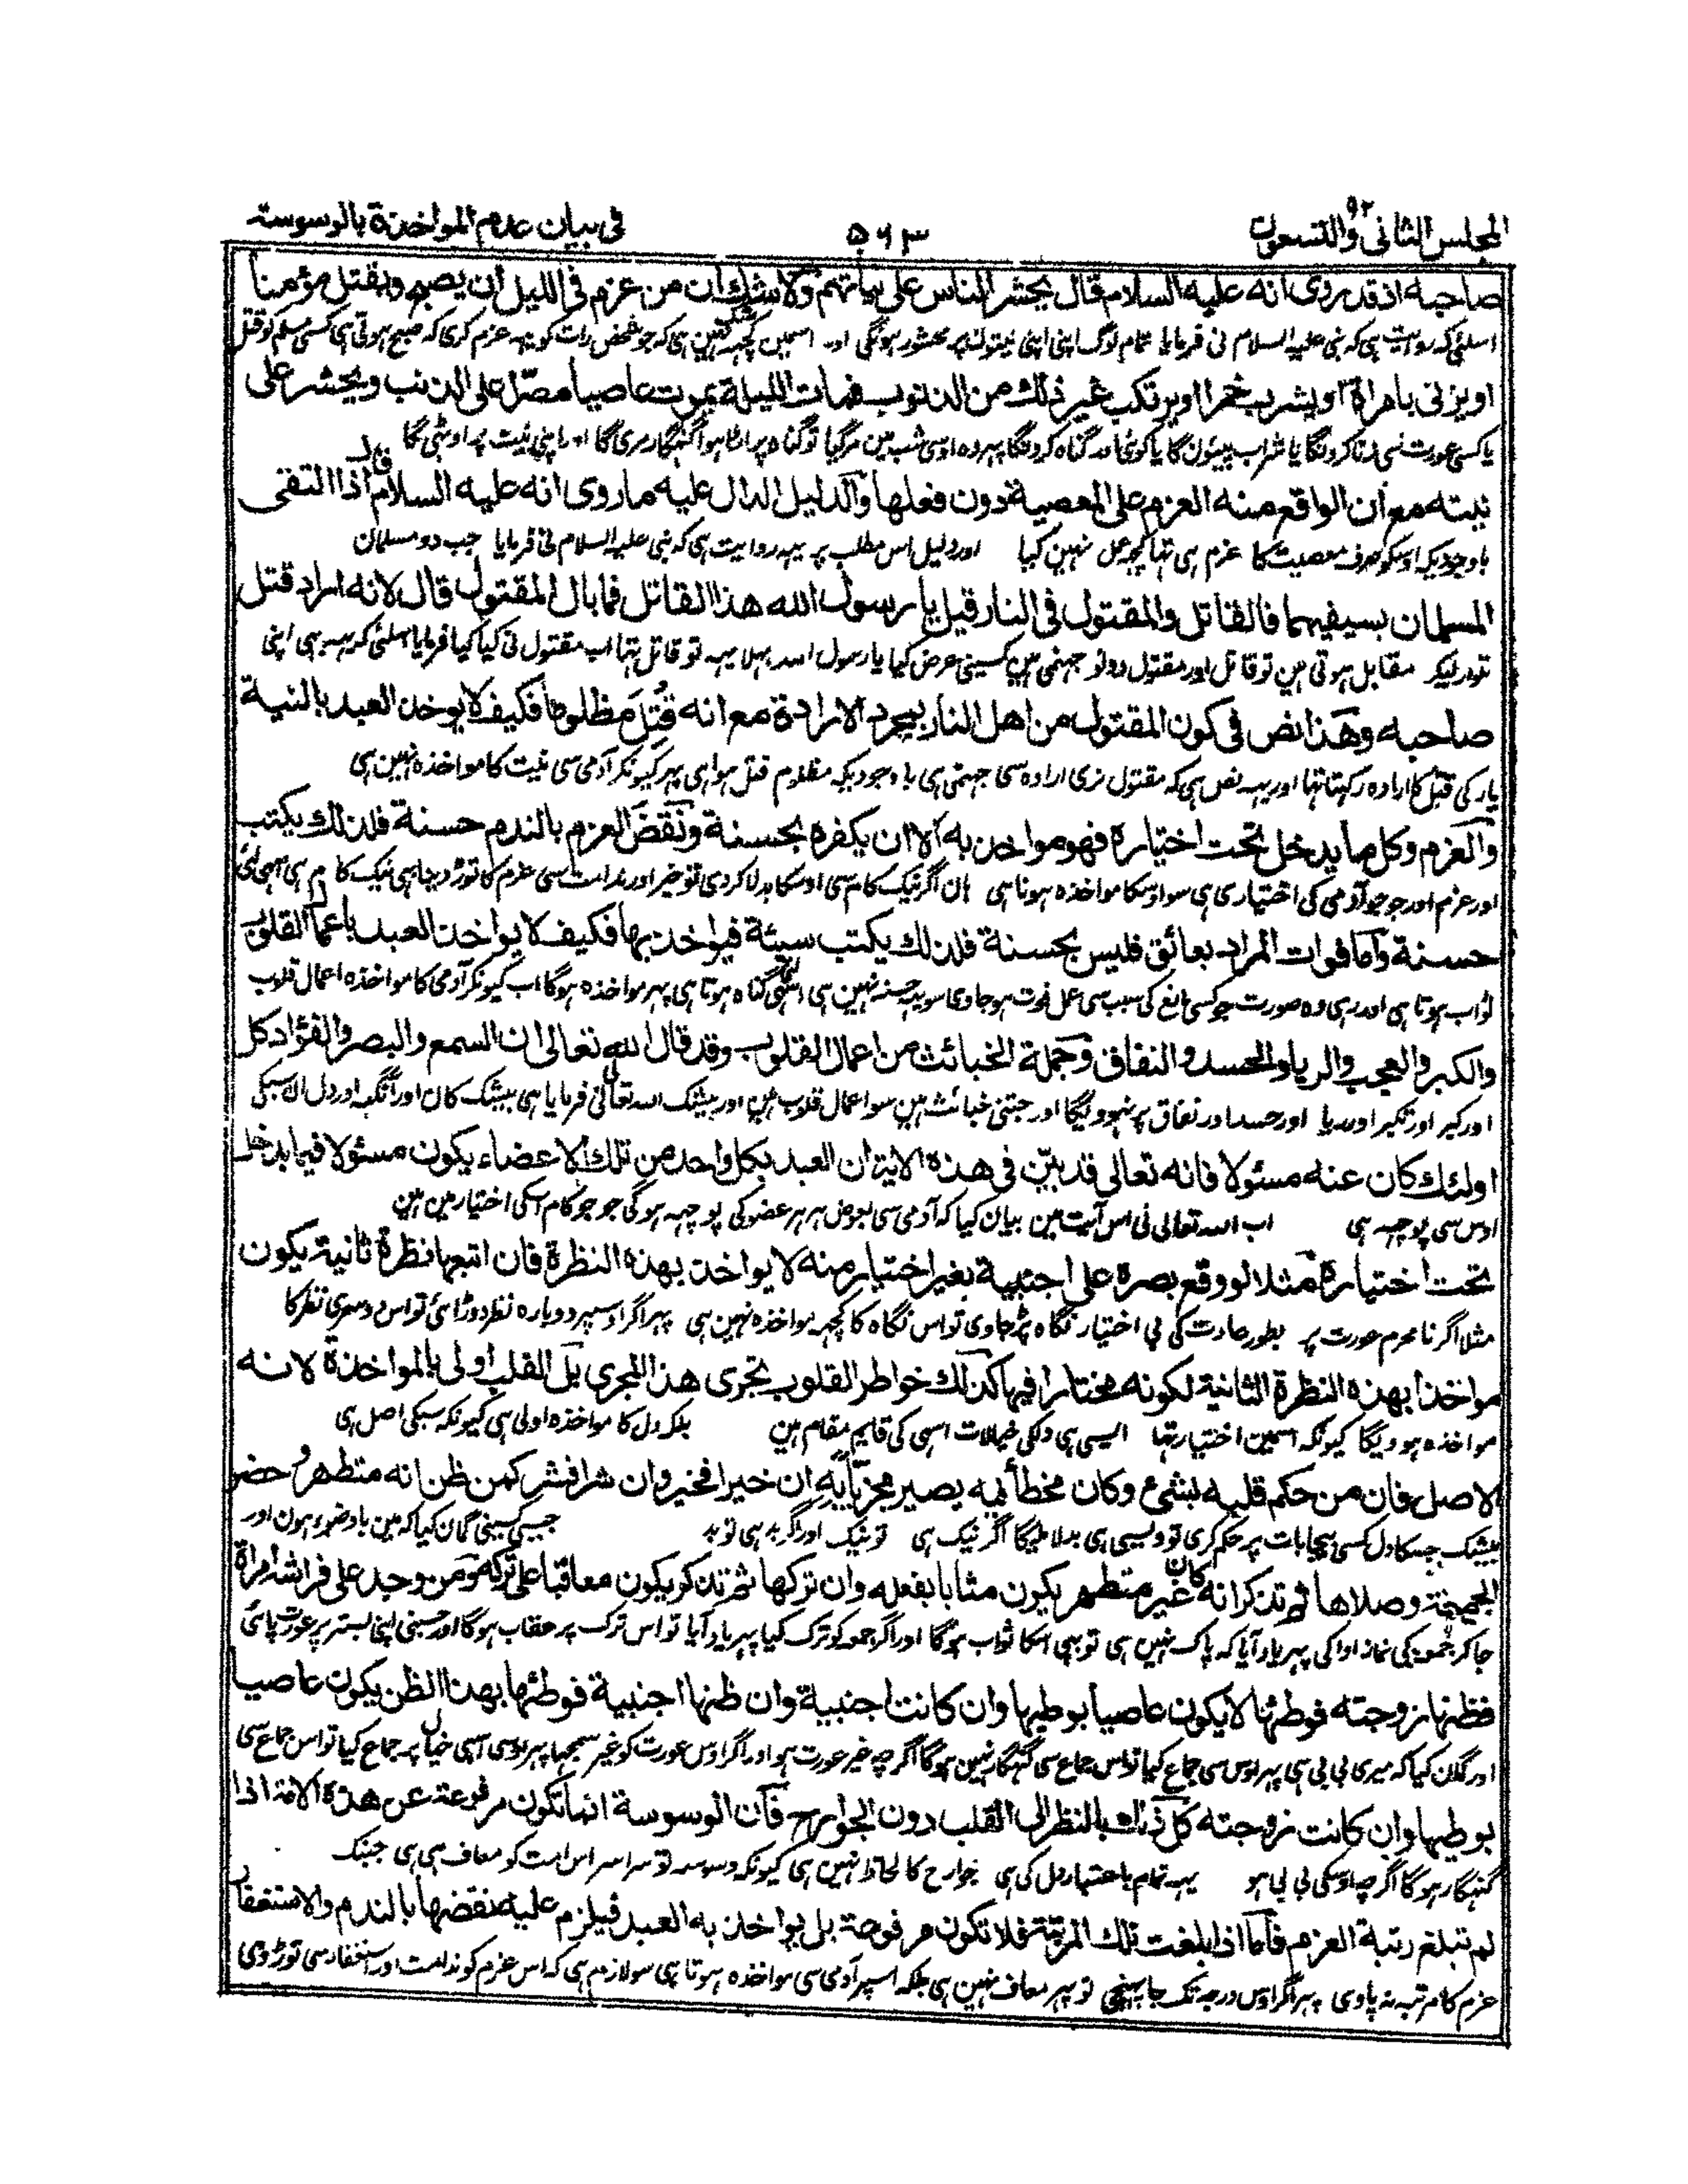 المجلس الثانی والتسعون ٩٢
٥٦٣
فی بیان عدم المواخذة بالوسوسة
صاحبه اذ قد روی انه علیه السلام قال یحشر الناس علی نیاتهم ولا شك ان من عزم فی اللیل ان یصبح ویقتل مؤمنا
اسلئی که روایت ہی که نبی علیه السلام نی فرمایا تمام لوگ اپنی اپنی نیتون پر محشور ہونگی اور اسمین کچہه شک نہین ہی که جو شخص رات کو یہه عزم کری که صبح ہوتی ہی کسی مسلم کو قتل
او یزنی بامراة او یشرب خمرا او یرتکب غیر ذلك من الذنوب فمات اللیلة یموت عاصیا مصرّا علی الذنب ویحشر علی
یا کسی عورت سی زنا کرونگا یا شراب پیئون گا یا کوئی اور گناه کرونگا پہر وه اوسی شب مین مرگیا تو گناه پر اڑا ہوا گنہگار مری گا اور اپنی نیت پر اوٹہی گا
نیته مع ان الواقع منه العزم علی المعصیة دون فعلها والدلیل الدال علیه ما روی انه علیه السلام قال اذا التقی
باوجودیکه اوسکو صرف معصیت کا عزم ہی تہا کچہه عمل نہین کیا اور دلیل اس مطلب پر یہه روایت ہی که نبی علیه السلام نی فرمایا جب دو مسلمان
المسلمان بسیفیهما فالقاتل والمقتول فی النار قیل یا رسول الله هذا القاتل فما بال المقتول قال لانه اراد قتل
تلوار لیکر مقابل ہوتی ہین تو قاتل اور مقتول دونو جہنمی ہین کسینی عرض کیا یا رسول الله بہلا یہه تو قاتل تہا اب مقتول نی کیا کیا فرمایا اسلئی که یہه بہی اپنی
صاحبه وهذا نص فی کون المقتول من اهل النار بمجرد الارادة مع انه قُتِل مظلوما فکیف لا یوخذ العبد بالنیة
یار کی قتل کا اراده رکہتا تہا اور یہه نص ہی که مقتول نری اراده سی جہنمی ہی باوجودیکه مظلوم قتل ہوا ہی پہر کیونکر آدمی سی نیت کا مواخذه نہین ہی
والعزم وکل ما یدخل تحت اختیاره فهو مواخذ به الا ان یکفره بحسنة ونقض العزم بالندم حسنة فلذلك یکتب
اور عزم اور جو جو آدمی کی اختیاری ہی سو اوسکا مواخذه ہونا ہی ہان اگر نیک کام سی اوسکا بدلا کردی تو خیر اور ندامت سی عزم کا توڑ دینا بہی نیک کام ہی اسی لئی
حسنة واما فوات المراد بعائق فلیس بحسنة فلذلك یکتب سیئة فیواخذ بها فکیف لا یواخذ العبد باعمال القلوب
ثواب ہوتا ہی اور رہی وه صورت جو کسی مانع کی سبب سی عمل فوت ہوجاوی سو یہه حسنه نہین ہی اسلئی گناه ہوتا ہی پہر مواخذه ہوگا اب کیونکر آدمی کا مواخذه اعمال قلوب
والکبر والعجب والریا والحسد والنفاق وجملة الخبائث من اعمال القلوب وقد قال الله تعالی ان السمع والبصر والفؤاد کل
اور کبر اور تکبر اور ریا اور حسد اور نفاق پر نہوویگا اور جتنی خبائث ہین سو اعمال قلوب ہین اور بیشک الله تعالی فرمایا ہی بیشک کان اور آنکہه اور دل ان سبکی
اولئك کان عنه مسئولا فانه تعالی قد بیّن فی هذه الایة ان العبد بکل واحد من تلك الاعضاء یکون مسئولا فیما یدخل
اوس سی پوچہه ہی اب الله تعالی نی اس آیت مین بیان کیا که آدمی سی بعوض ہر ہر عضو کی پوچہه ہوگی جو جو کام اسکی اختیار مین ہین
تحت اختیاره مثلا لو وقع بصره علی اجنبیة بغیر اختیار منه لا یواخذ بهذه النظرة فان اتبعها نظرة ثانیة یکون
مثلا اگر نا محرم عورت پر بطور عادت کی بی اختیار نگاه پڑجاوی تو اس نگاه کا کچہه مواخذه نہین ہی پہر اگر اوسپر دوباره نظر دوڑائی تو اس دوسری نظر کا
مواخذا بهذه النظرة الثانیة لکونه مختارا فیها کذلك خواطر القلوب تجری هذا المجری بل القلب اولی بالمواخذة لانه
مواخذه ہوویگا کیونکه اسمین اختیار تہا ایسی ہی دلکی خیالات اسی کی قایم مقام ہین بلکه دل کا مواخذه اولی ہی کیونکه سبکی اصل ہی
الاصل فان من حکم قلبه بشیء وکان مخطأ فیه یصیر مجزیا به ان خیرا فخیر وان شرا فشر کمن ظن انه متطهر وحضر
بیشک جسکا دل کسی بیجا بات پر حکم کری تو ویسی ہی بدلا ملیگا اگر نیک ہی تو نیک اور اگر بد ہی تو بد جیسی کسینی گمان کیا که مین باوضو ہون اور
الجمعة وصلاها ثم تذکر انه کان غیر متطهر یکون مثابا بفعله وان ترکها ثم تذکر یکون معاقبا علی ترکه ومن وجد علی فراشه امراة
جاکر جمعه کی نماز ادا کی پہر یاد آیا که پاک نہین ہی تو بہی اسکا ثواب ہوگا اور اگر جمعه کو ترک کیا پہر یاد آیا تو اس ترک پر عقاب ہوگا اور جسنی اپنی بستر پر عورت پائی
فظنها زوجته فوطئها لا یکون عاصیا بوطیها وان کانت اجنبیة وان ظنها اجنبیة فوطئها بهذا الظن یکون عاصیا
اور گمان کیا که میری بی بی ہی پہر اوس سی جماع کیا تو اس جماع سی گنہگار نہین ہوگا اگرچه غیر عورت ہو اور اگر اوس عورت کو غیر سمجہا پہر اوسی اسی خیال پر جماع کیا تو اس جماع سی
بوطیها وان کانت زوجته کل ذلك بالنظر الی القلب دون الجوارح فان الوسوسة انما تکون مرفوعة عن هذه الامة اذا
گنہگار ہوگا اگرچه اوسکی بی بی ہو یہه تمام باعتبار دل کی ہی جوارح کا لحاظ نہین ہی کیونکه وسوسه تو سراسر اس امت کو معاف ہی ہی جبتک
لم تبلغ رتبة العزم فاما اذا بلغت تلك المرتبة فلا تکون مرفوعة بل یواخذ به العبد فیلزم علیه نقضها بالندم والاستغفار
عزم کا مرتبه نه پاوی پہر اگر اوس درجه تک جا پہنچی تو پہر معاف نہین ہی بلکه اسپر آدمی سی مواخذه ہوتا ہی سو لازم ہی که اس عزم کو ندامت اور استغفار سی توڑ دی